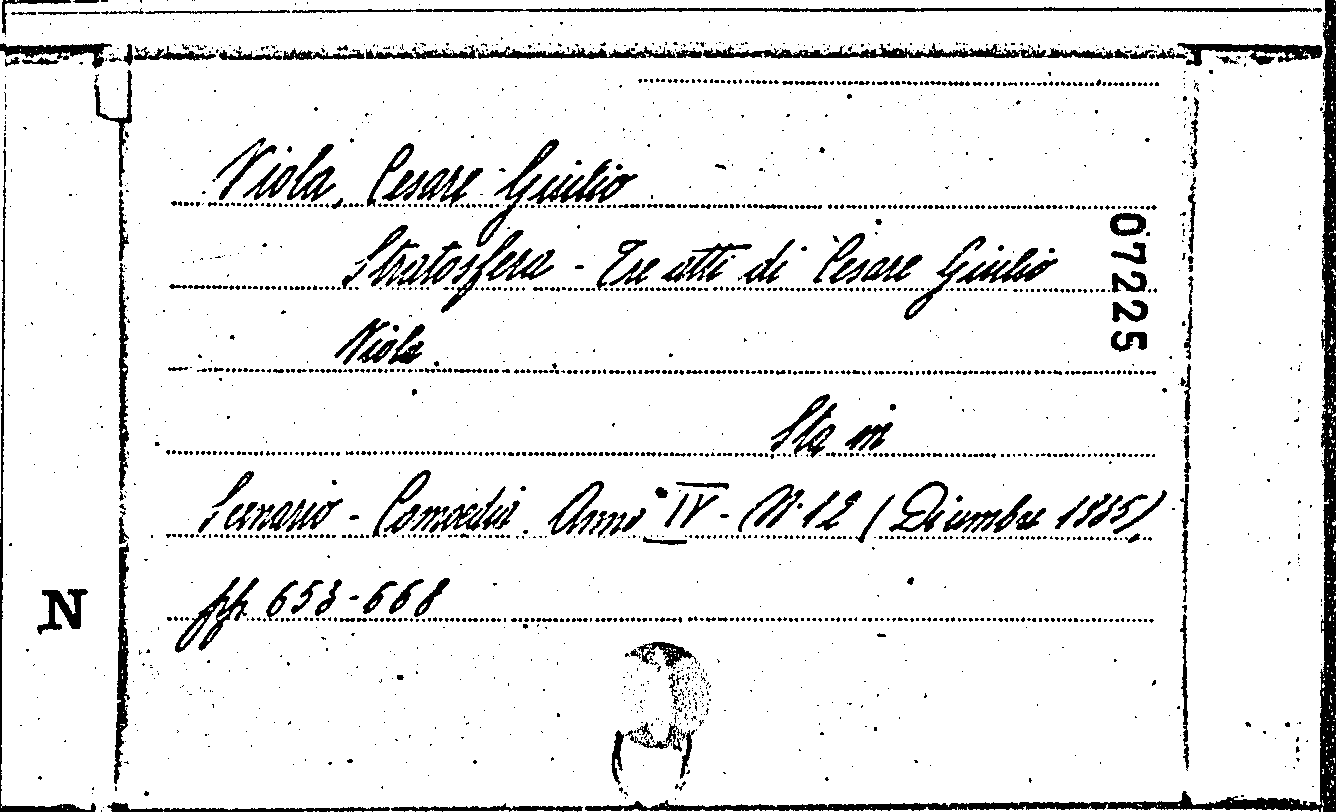 Viola, Cesare Giulio
Stratosfera - Tre atti di Cesare Giulio
Viola.
Sta in
Scenario - Comoedia. Anno IV - N. 12 (Dicembre 1935)
pp. 653-668
07225
N